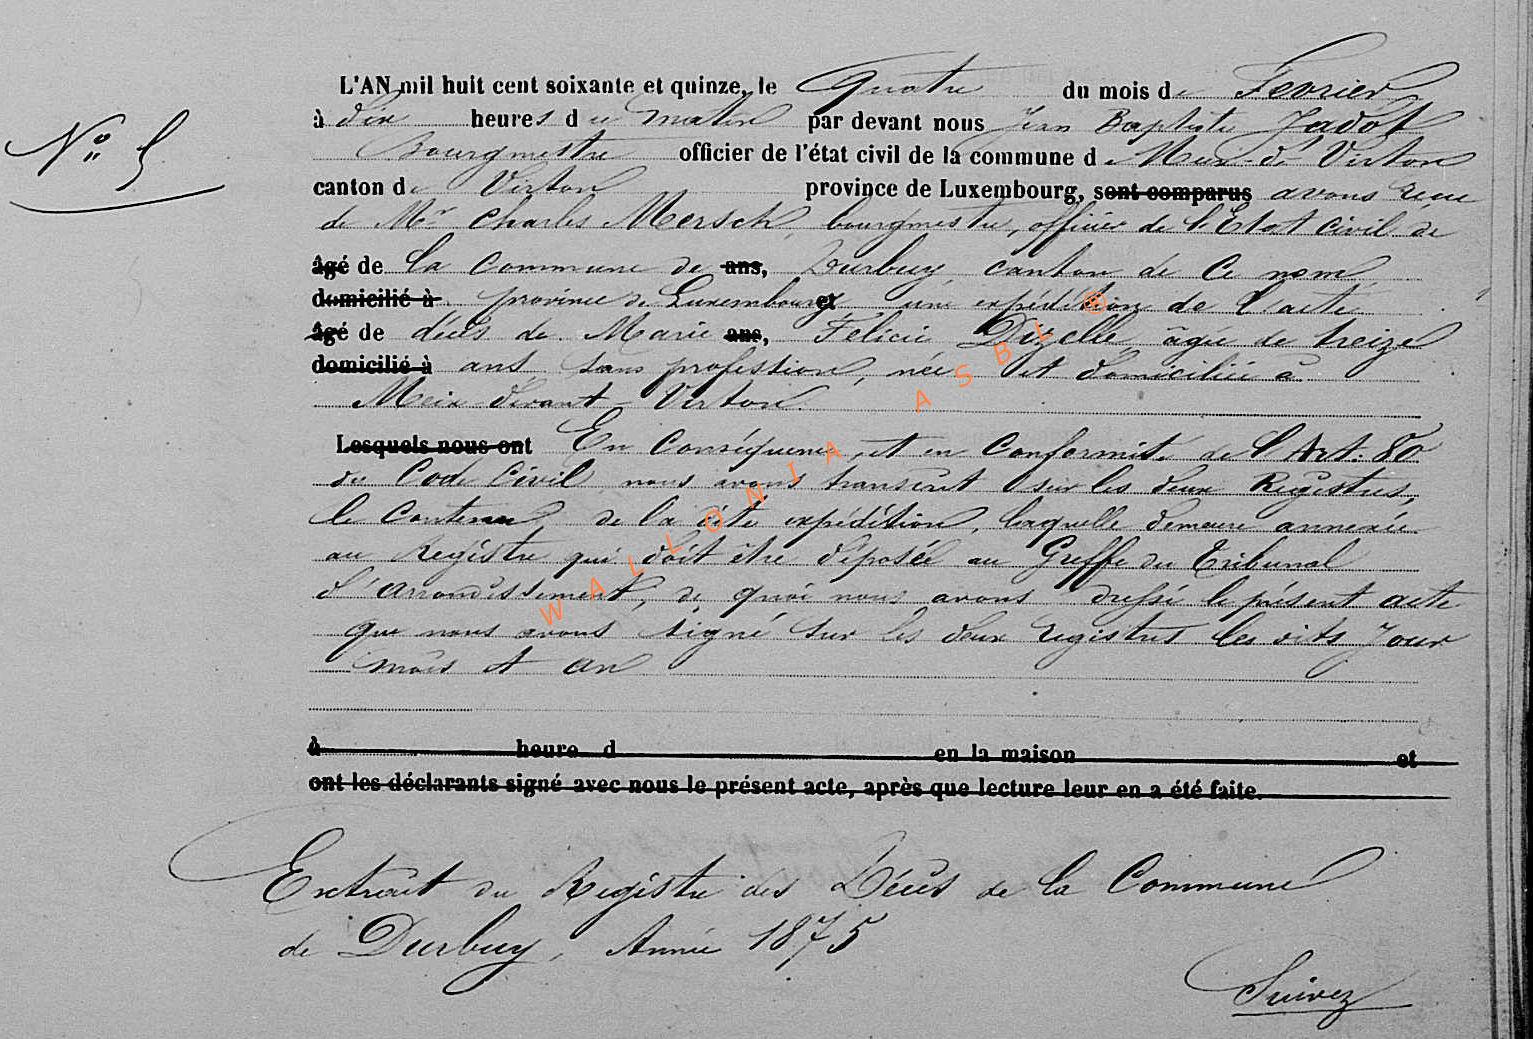 N° 5
L'AN mil huit cent soixante et quinze, le Quatre du mois de Fevrier
à dix heures du matin par devant nous Jean Baptiste Jadot
Bourgmestre officier de l'état civil de la commune de Meix-dt Virton
canton de Virton province de Luxembourg, sont comparus avons reçu
de Mr Charles Mersch, bourgmestre, officier de l'Etat civil de
âgé de la commune de ans, Durbuy canton de ce nom
domicilié à province de Luxembourg et une expédition de l'acte
âgé de décès de Marie ans, Félicie âgée de treize
domicilié à ans sans profession, née et domiciliée à
Meix devant Virton.
Lesquels nous ont En conséquence, et en conformité de l'Art: 80
du Code Civil nous avons transcrit sur les deux Registres,
le contenu de la dite expédition, laquelle demeure annexée
au Registre qui doit être déposé au Greffe du Tribunal
d'arrondissement, de quoi nous avons dressé le présent acte
que nous avons signé sur les deux registres les dits jour
mois et an
à heure d en la maison et
ont les déclarants signé avec nous le présent acte, après que lecture leur en a été faite.
Extrait du Registre des Décès de la Commune
de Durbuy, Année 1875
Suivez
WALLONIA ASBL ®